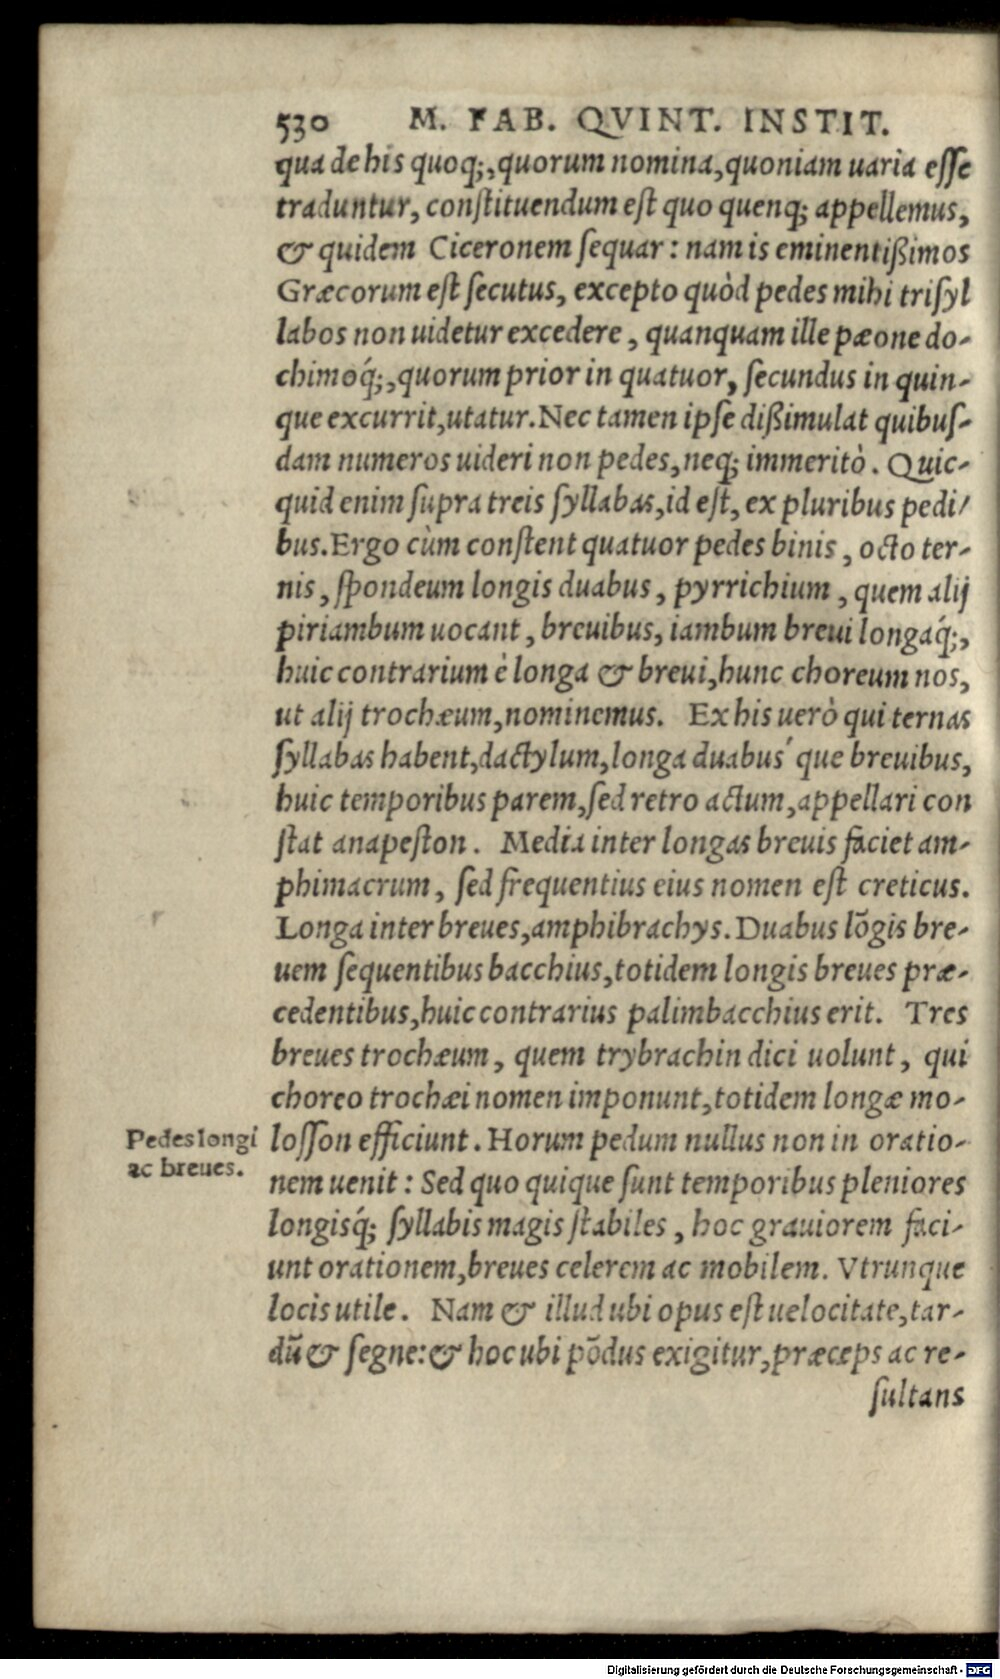 530 M. FAB. QVINT. INSTIT.
qua de his quoq;, quorum nomina, quoniam uaria eſſe
traduntur, conſtituendum eſt quo quenq; appellemus,
& quidem Ciceronem ſequar: nam is eminentißimos
Græcorum eſt ſecutus, excepto quòd pedes mihi triſyl
labos non uidetur excedere, quanquam ille pæone do-
chimoq́;, quorum prior in quatuor, ſecundus in quin-
que excurrit, utatur. Nec tamen ipſe dißimulat quibuſ-
dam numeros uideri non pedes, neq; immeritò. Quic-
quid enim ſupra treis ſyllabas, id eſt, ex pluribus pedi/
bus. Ergo cùm conſtent quatuor pedes binis, octo ter-
nis, ſpondeum longis duabus, pyrrichium, quem alij
piriambum uocant, breuibus, iambum breui longaq́;,
huic contrarium è longa & breui, hunc choreum nos,
ut alij trochæum, nominemus. Ex his uerò qui ternas
ſyllabas habent, dactylum, longa duabus´que breuibus,
huic temporibus parem, ſed retro actum, appellari con
ſtat anapeſton. Media inter longas breuis faciet am-
phimacrum, ſed frequentius eius nomen eſt creticus.
Longa inter breues, amphibrachys. Duabus lõgis bre-
uem ſequentibus bacchius, totidem longis breues præ-
cedentibus, huic contrarius palimbacchius erit. Tres
breues trochæum, quem trybrachin dici uolunt, qui
choreo trochæi nomen imponunt, totidem longæ mo-
Pedes longi
ac breues.
loſſon efficiunt. Horum pedum nullus non in oratio-
nem uenit: Sed quo quique ſunt temporibus pleniores
longisq́; ſyllabis magis ſtabiles, hoc grauiorem faci-
unt orationem, breues celerem ac mobilem. Vtrunque
locis utile. Nam & illud ubi opus eſt uelocitate, tar-
dũ & ſegne: & hoc ubi põdus exigitur, præceps ac re-
ſultans
Digitalisierung gefördert durch die Deutsche Forschungsgemeinschaft - DFG